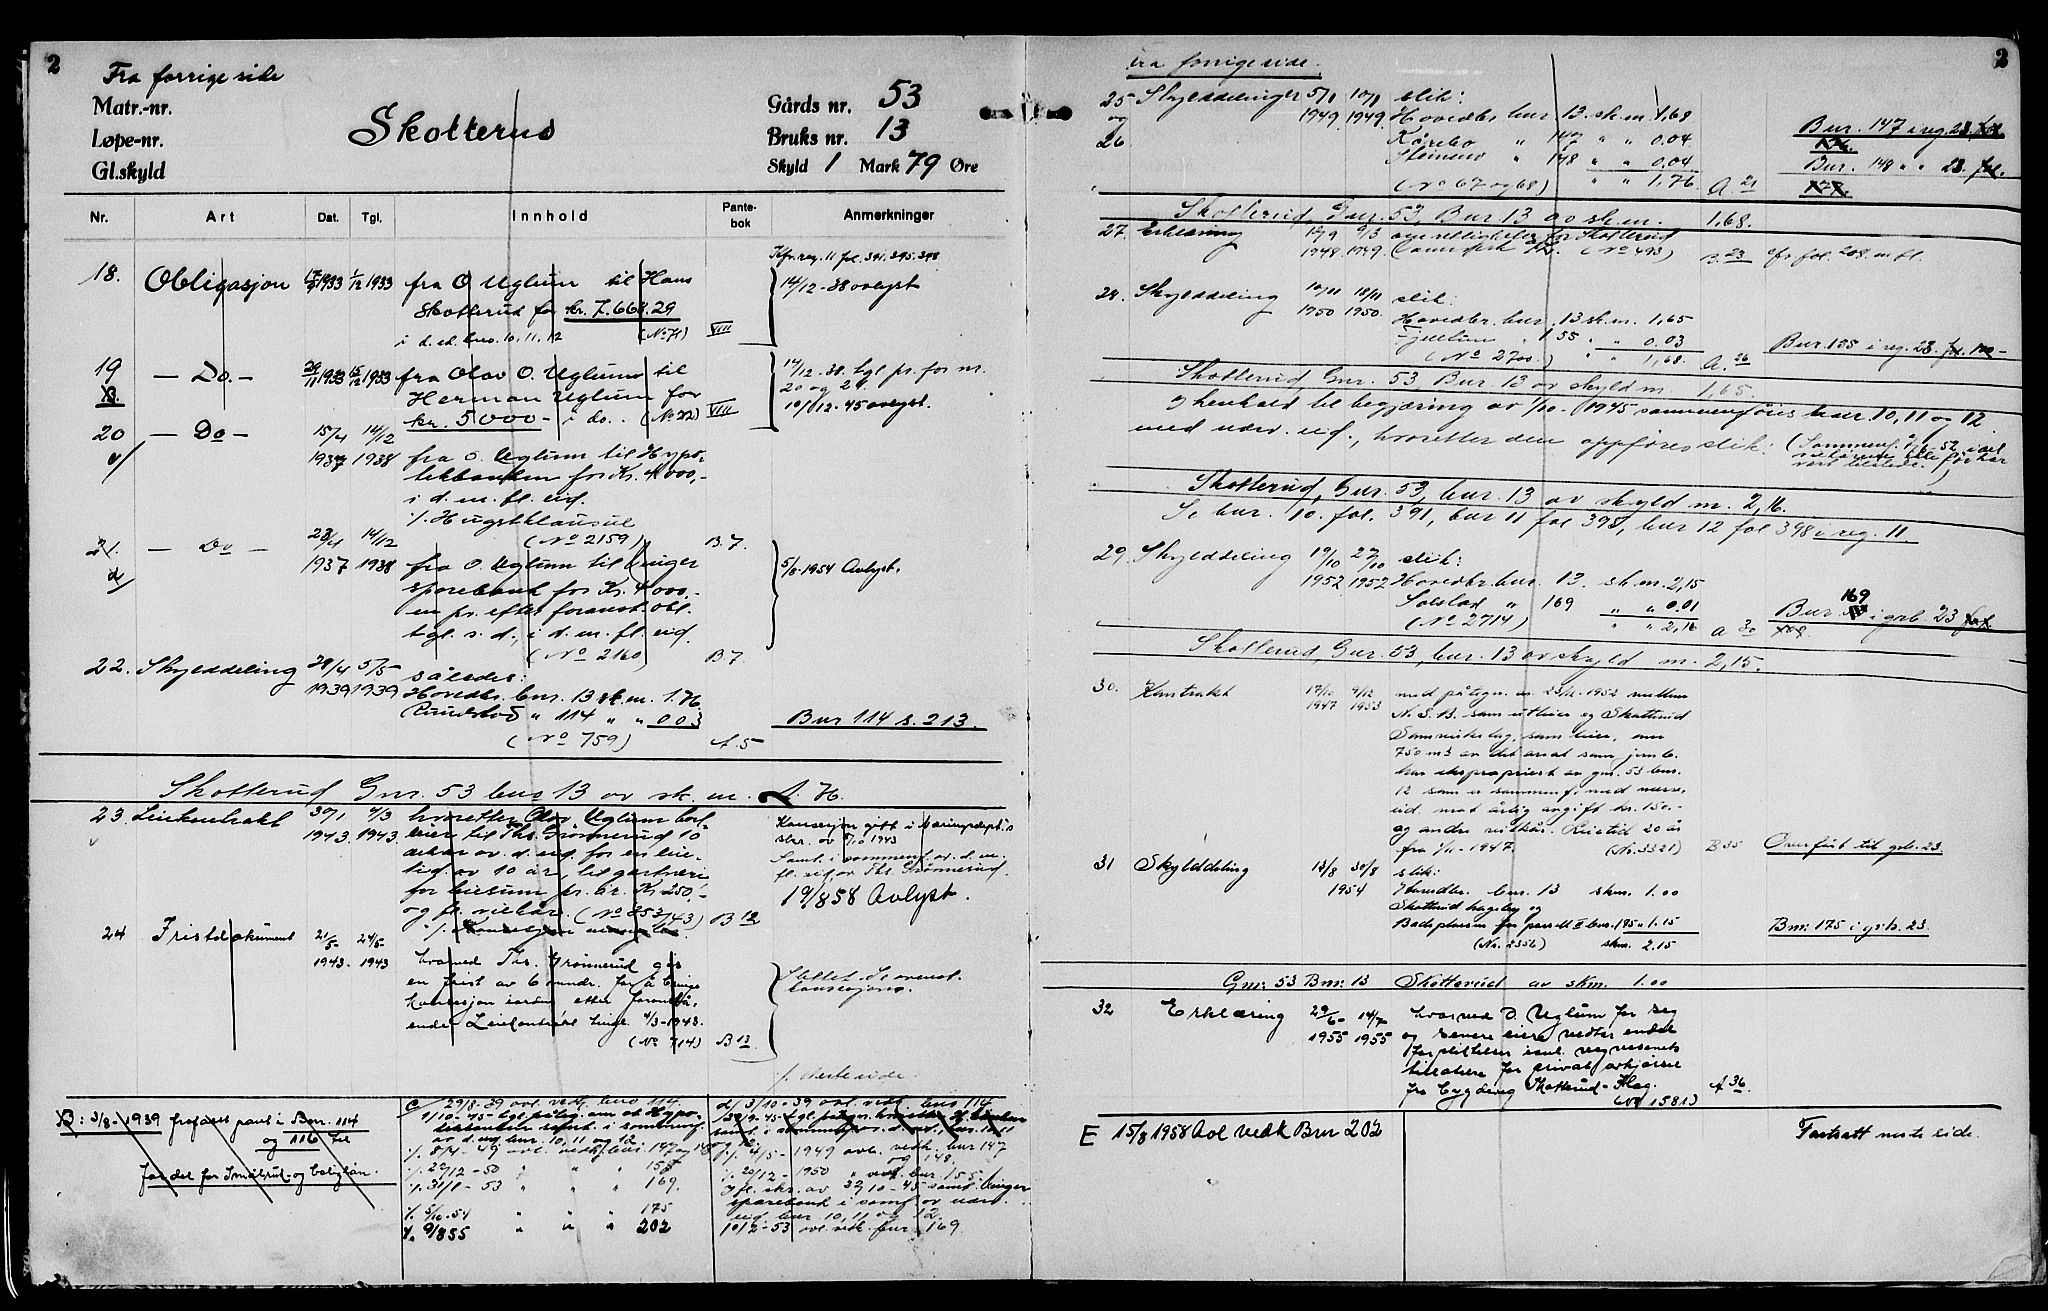 2
Fra forrige side
Matr.-nr.
Løpe-nr.
Gl.skyld
Skotterud
Gårds nr. 53
Bruks nr. 13
Skyld 1 Mark 79 Øre
Nr. Art Dat. Tgl. Innhold Pante-bok Anmerkninger
Kfr. reg. 11 fol. 391. 395. 398
18. Obligasjon 1933 1/12 1933 fra O Uglum til Hans
Skotterud for kr. 7.668.29
i d. ed. bno. 10, 11, 12 (No 71) VIII
14/12-38 avlyst
19 — Do. — 29/11 1933 15/12 1933 fra Olav O. Uglum til
Herman Uglum for
kr. 5000- i do. (No 22) VIII
14/12-38. tgl pr. for m.
20 og 21.
10/12-45 avlyst.
20 — Do — 15/4 1937 14/12 1938
fra O. Uglum til Hypo-
tekbanken for Kr. 4000,-
i d. m. fl. eid.
(No 2159) B.7.
21. — Do — 23/4 1937 14/12 1938
fra O. Uglum til Vinger
sparebank for Kr. 4000,-
en pr. efter foranst. obl.
tgl. s. d., i d. m. fl. eid.
(No 2160) B7.
5/8-1954 Avlyst.
22. Skylddeling 29/4 1939 5/5 1939 således:
Hovedbr. bnr. 13 sk. m. 1.76
" 114 " " 0.03
(No 759) A.5
Bnr 114 s. 213.
Skotterud Gnr. 53 bno 13 av sk. m. 1.76.
23. Leiekontrakt 30/1 1943. 4/3 1943. hvoretter Olav Uglum bort-
leier til Ths. Grønnerud 10
dekar av d. eid. for en leie-
tid av 10 år, til gartneri
for leiesum pr. år. Kr 250,-
og fl. vilkår. (No 353/43) B 12
Konsesjon gitt i Næringsdept.s
skr. av 5/10 1943
19/858 Avlyst.
24 Fristdokument 21/5- 1943. 24/5- 1943
hvormed Ths. Grønnerud gis
en frist av 6 mndr. for å bringe
konsesjon iorden etter foranstå-
ende Leiekontrakt tingl. 4/3-1943.
(No 714) B 13
Slettet. Se ovenst.
konsesjon.
/. neste side.
B: 3/8-1939 frafaldt pant i Bnr. 114
og 116 til
fordel for Småbruk- og boliglån.
c/ 29/8-39 avl. vedk. bno 114.
av d. eid bnr. 10, 11 og 12
/. 8/4-49 avl. vedk. bnr. 147 og 148
/. 20/12-50 " " 155
/. 31/1-53 " " " 169.
/. 5/11-54 " " " 175
/. 9/855 " " " 202
d/ 3/10-39 avl. vedk. bno 114
/. 4/5-1949 avl. vedk. bnr 147
og 148.
/. 20/12-1950 " vedk. bnr. 155.
sparebank i samf. av nærv.
eid bnr. 10, 11 og 12.
10/2-53 avl. vedk. bnr. 169.
2
fra forrige side.
25 og 26 Skylddelinger 5/1 1949. 10/1 1949. slik:
Hovedbr. bnr. 13. sk. m 1,68
" 147 " " 0.04
" 148 " " 0.04
(No 67 og 68) " " 1,76. A. 21
Bnr. 147 i reg. 23. fol
Bnr. 148 " " 23. fol.
Skotterud, Gnr. 53, Bnr. 13 av sk. m. 1,68.
27. Erklæring 10/9 1948 9/3 1949. om rettigheter for Skotterud
(No 493) B. 23
cfr. fol. 208. m. fl.
28. Skylddeling 10/11 1950 18/11 1950. slik:
Hovedbr. bnr. 13 sk. m. 1,65
" 155 " " 0.03
(No 2700.) " " 1,68. A. 26
Bnr. 155 i reg. 23. fol.
Skotterud, Gnr. 53 Bnr. 13 av skyld m. 1,65.
I henhold til begjæring av 1/10-1945 sammenføies bnr. 10, 11 og 12
med nærv. eid., hvoretter den oppføres slik:
Skotterud, Gnr. 53, bnr. 13 av skyld m. 2,16.
Se bnr. 10. fol. 391, bnr 11 fol 395, bnr 12 fol 398 i reg. 11.
29. Skylddeling 19/10 1952 27/10 1952 slik:
Hovedbr. bnr. 13. sk. m. 2,15
Solstad " 169 " " 0.01
(No 2714) " " 2,16 A 30
Bnr. 169 i grb 23 fol.
Skotterud, Gnr. 53, bnr. 13 av skyld m. 2,15.
30. Kontrakt 17/10 1947 9/12 1953 med påtegn. av 23/11. 1952 mellem
N.S.B. som utleier og Skotterud
Samvirkelag, som leier, om
750 m2 av det areal som jernb.
har ekspropriert av gnr. 53 bnr.
12 som er sammenf. med nærv.
eid. mot årlig avgift kr. 150.-
og andre vilkår. Leietid 20 år
fra 1/11-1947. (No. 3321) B 35
Overført til grb. 23.
31 Skylddeling 13/8 30/8 1954 slik:
Hovedbr. bnr. 13 skm. 1.00
Skotterud hageby og
Badeplassen for parsell II bnr. 175 " 1.15
(No. 2356) skm. 2.15
Bnr: 175 i grb. 23.
Gnr: 53 Bnr: 13 Skotterud av skm. 1.00
32 Erklæring 29/6- 1955 14/7 1955 hvorved O. Uglum for seg
og senere eiere vedtar endel
forpliktelser innl. vegvesenets
tillatelse for privat avkjørsel
fra bygdeveg Skotterud-Klag.
(No 1581) A 36.
E 15/8 1958 Avl vedk Bnr 202
Fortsatt neste side.